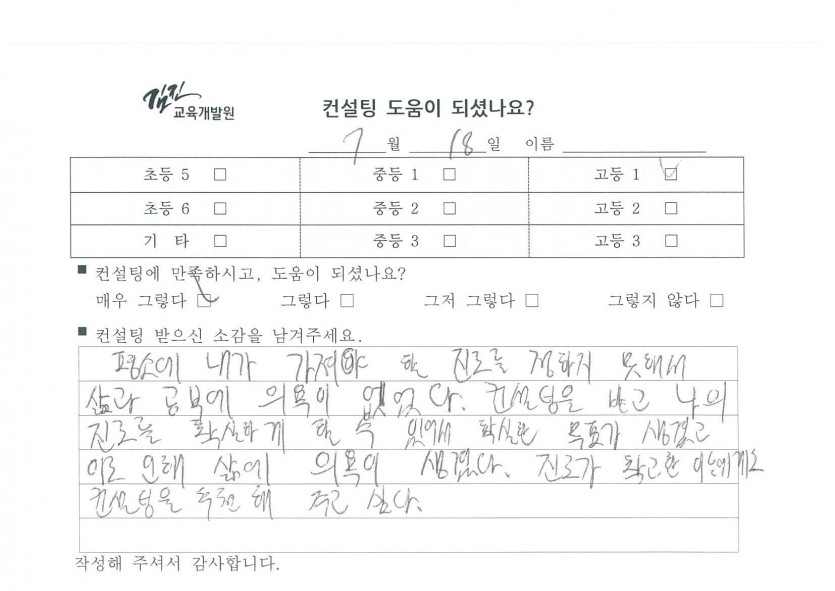 김진
교육개발원
컨설팅 도움이 되셨나요?
7 월 18 일 이름
초등 5 □ 중등 1 □ 고등 1 ☑
초등 6 □ 중등 2 □ 고등 2 □
기 타 □ 중등 3 □ 고등 3 □
■ 컨설팅에 만족하시고, 도움이 되셨나요?
매우 그렇다 ☑ 그렇다 □ 그저 그렇다 □ 그렇지 않다 □
■ 컨설팅 받으신 소감을 남겨주세요.
평소에 내가 가져야 할 진로를 정하지 못해서
삶과 공부에 의욕이 없었다. 컨설팅을 받고 나의
진로를 확실하게 할 수 있어서 확실한 목표가 생겼고
이로 인해 삶에 의욕이 생겼다. 진로가 확고한
컨설팅을 추천해 주고 싶다.
작성해 주셔서 감사합니다.